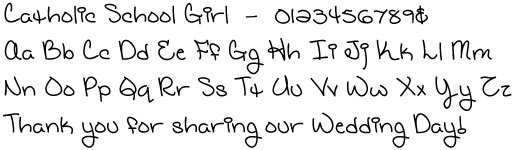 Catholic School Girl - 0123456789$
Aa Bb Cc Dd Ee Ff Gg Hh Ii Jj Kk Ll Mm
Nn Oo Pp Qq Rr Ss Tt Uu Vv Ww Xx Yy Zz
Thank you for sharing our Wedding Day!